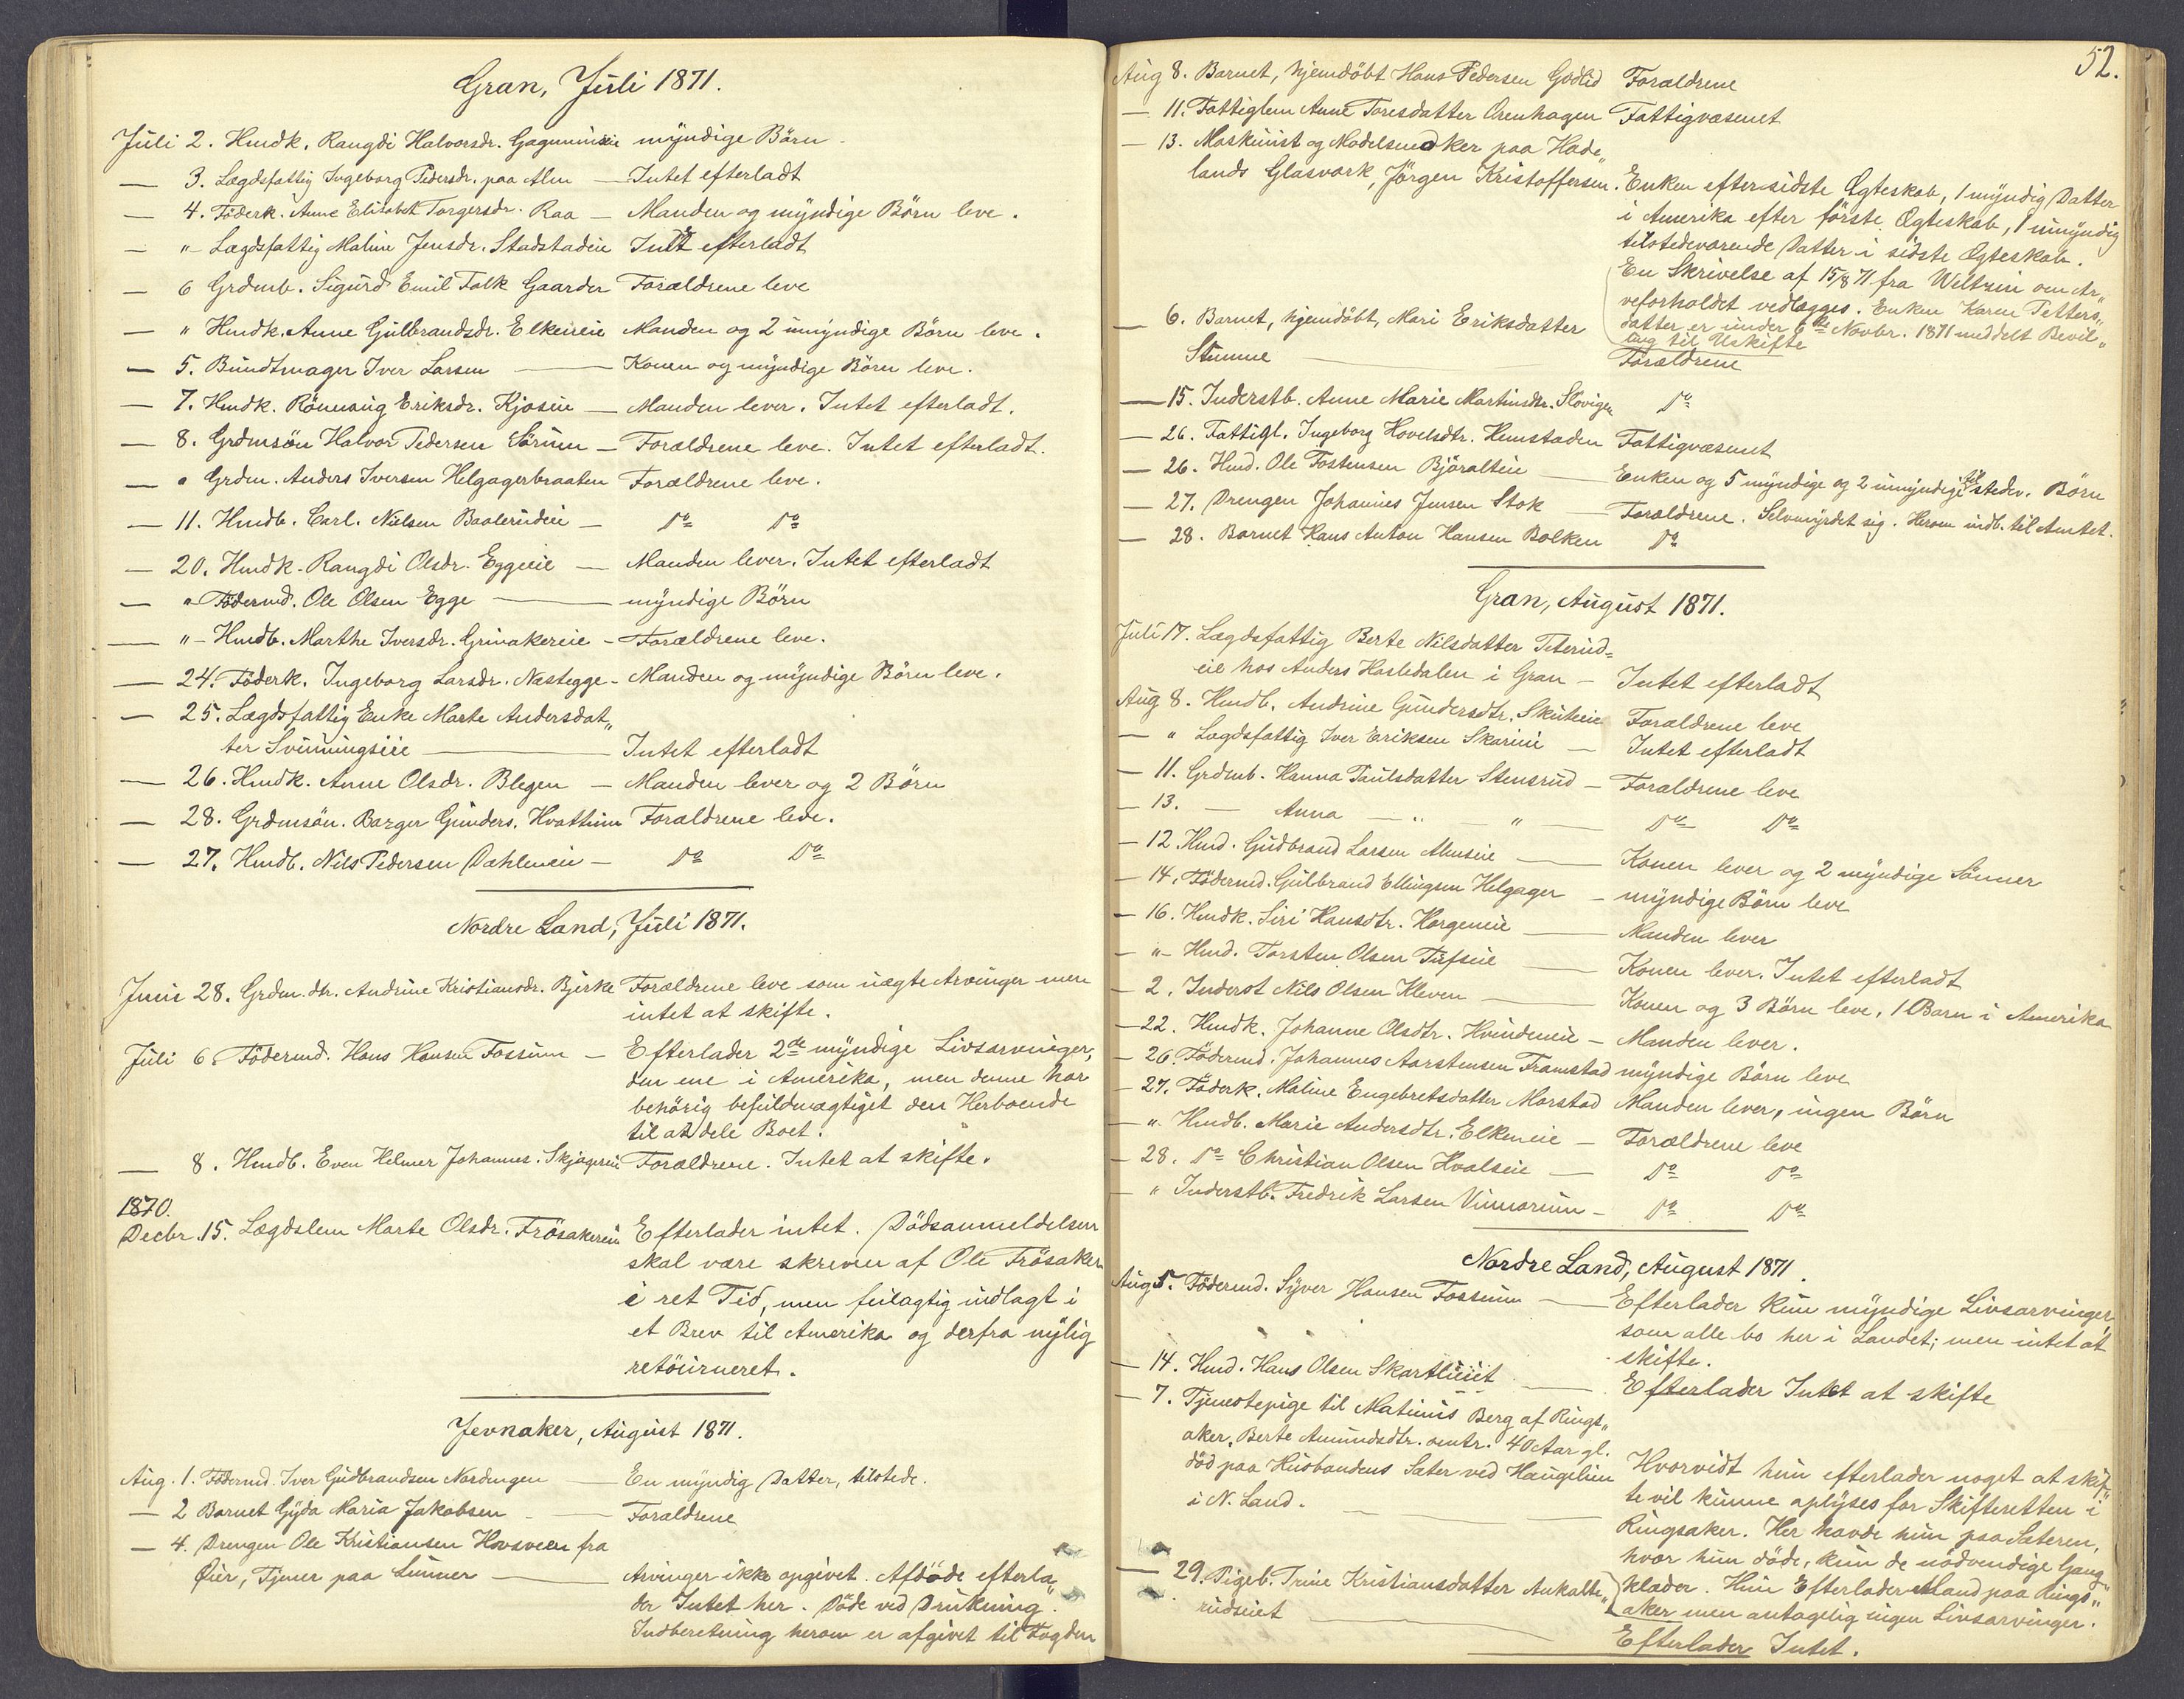 Gran, Juli 1871.
Juli 2. Hmdk. Rangdi Halvorsdr. Gagnumseie myndige Börn -
— 3. Lægdsfattig Ingeborg Pedersdr. paa Alm — Intet efterladt
— 4. Föderk. Anne Elisabeth Torgersdr. Raa — Manden og myndige Börn leve.
— "- Lægdsfattig Maline Jensdr. Stadstadeie Intet efterladt
— 6 Grdmb. Sigurd Emil Falk Gaarder Forældrene leve
— " Hmdk. Anne Gulbrandsdr. Elkeneie Manden og 2 umyndige Börn leve.
— 5. Bundtmager Iver Larsen — Konen og myndige Börn leve.
— 7. Hmdk. Rönnaug Eriksdr. Kjoseie — Manden lever. Intet efterladt.
— 8. Grdmsön Halvor Pedersen Sörum — Forældrene leve. Intet efterladt.
— " Grdm. Anders Iversen Helgagerbraaten Forældrene leve.
— 11. Hmdb. Carl. Nielsen Baalerudeie — Do Do
— 20. Hmdk. Rangdi Olsdr. Eggeeie — Manden lever. Intet efterladt
— " Födermd. Ole Olsen Egge — myndige Börn
— "- Hmdb. Marthe Iversdr. Grinakereie - Forældrene leve.
— 24. Föderk. Ingeborg Larsdr. Næstegge - Manden og myndige Börn leve.
— 25. Lægdsfattig Enke Marte Andersdat„
ter Svinningseie — Intet efterladt
— 26. Hmdk. Anne Olsdr. Blegen — Manden lever og 2 Börn
— 28. Grdmsön. Borger Gunders. Hvattum Forældrene leve.
— 27. Hmdb. Nils Pedersen Dahleneie — Do Do
Nordre Land, Juli 1871.
Juni 28. Grdm. dtr. Andrine Kristiansdr. Bjerke Forældrene leve som uægte Arvinger men
intet at skifte.
Juli 6 Födermd. Hans Hansen Fossum — Efterlader 2de myndige Livsarvinger,
den ene i Amerika, men denne har
behörig befuldmægtiget den Herboende
til at dele Boet.
— 8. Hmdb. Even Helmer Johannes. Skjagereie Forældrene. Intet at skifte.
1870.
Decbr. 15. Lægdslem Marte Olsdr. Frösakereie Efterlader intet. Dödsanmeldelsen
skal være skreven af Ole Frösaker
i ret Tid, men feilagtig indlagt i
et Brev til Amerika og derfra nylig
retöurneret.
Jevnaker, August 1871.
Aug. 1. Födermd. Iver Gudbrandsen Nordengen — En myndig Datter, tilstede.
— 2 Barnet Gyda Maria Jakobsen — Forældrene
— 4. Drengen Ole Kristiansen Hovsveen fra
Öier, Tjener paa Lunner — Arvinger ikke opgivet. Afdöde efterla„
der Intet her. Döde ved Drukning.
Indberetning herom er afgivet til Fogden
52.
Aug 8. Barnet, hjemdöbt Hans Pedersen Godlid Forældrene
— 11. Fattiglem Anne Toresdatter Orenhagen Fattigvæsenet
— 13. Maskinist og Modelsnedker paa Hade„
lands Glasværk, Jörgen Kristoffersen. Enken efter sidste Ægteskab, 1 myndig Datter
i Amerika efter förste Ægteskab, 1 umyndig
tilstedeværende Datter i sidste Ægteskab.
En Skrivelse af 15/8 71 fra Weltzin om Ar„
veforholdet vedlægges. Enken Karen Petters„
datter er under 6te Novbr. 1871 meddelt Bevil„
ling til Uskifte
— 6. Barnet, hjemdöbt, Mari Eriksdatter
Stumne — Forældrene
— 15. Inderstb. Anne Marie Martinsdtr. Sloviger Do
— 26. Fattigl. Ingeborg Hovelsdtr. Hemstaden Fattigvæsenet
— 26. Hmd. Ole Fostensen Björalteie — Enken og 5 myndige og 2 umyndige tilstedev. Börn
— 27. Drengen Johannes Jensen Stok — Forældrene. Selvmyrdet sig. Herom indb. til Amtet.
— 28. Barnet Hans Anton Hansen Bolken Do
Gran, August 1871.
Juli 17. Lægdsfattig Berte Nilsdatter Teterud=
eie hos Anders Hasledalen i Gran — Intet efterladt
Aug 8. Hmdb. Andrine Gundersdtr. Skuteeie Forældrene leve
— " Lægdsfattig Iver Eriksen Skarieie — Intet efterladt
— 11. Grdmb. Hanna Paulsdatter Stensrud — Forældrene leve
— 13. — Anna — " — " — Do Do
— 12. Hmd. Gudbrand Larsen Almseie — Konen lever og 2 myndige Sönner
— 14. Födermd. Gulbrand Ellingsen Helgager — myndige Börn leve
— 16. Hmdk. Siri Hansdtr. Horgeneie — Manden lever
— "- Hmd. Torsten Olsen Tufseie — Konen lever. Intet efterladt
— 2. Inderst Nils Olsen Kleven — Konen og 3 Börn leve, 1 Barn i Amerika
— 22. Hmdk. Johanne Olsdtr. Hvindeneie — Manden lever.
— 26 Födermd. Johannes Aarstensen Framstad myndige Börn leve
— 27. Föderk. Maline Engebretsdatter Morstad Manden lever, ingen Börn
— " Hmdb. Marie Andersdtr. Elkeneie — Forældrene leve
— 28. Do Christian Olsen Hvalseie — Do Do
— " Inderstb. Fredrik Larsen Vinnorum — Do Do
Nordre Land, August 1871.
Aug 5. Födermd. Syver Hansen Fossum — Efterlader kun myndige Livsarvinger,
som alle bo her i Landet; men intet at
skifte.
— 14. Hmd. Hans Olsen Skartlieiet — Efterlader Intet at skifte
— 7. Tjenestepige til Matinus Berg af Rings„
aker, Berte Amundsdtr. omtr. 40 Aar gl.
död paa Husbondens Sæter ved Haugelien
i N. Land. — Hvorvidt hun efterlader noget at skif„
te vil kunne oplyses for Skifteretten i
Ringsaker. Her havde hun paa Sæteren,
hvor hun döde, kun de nödvendige Gang„
klæder. Hun Efterlader Mand paa Rings„
aker men antagelig ingen Livsarvinger.
— 29. Pigeb. Trine Kristiansdatter Aukalte„
rudseiet — Efterlader Intet.